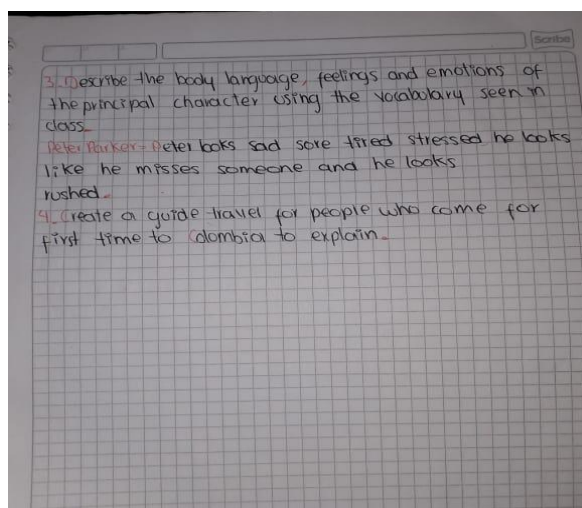 Scribe
3. Describe the body language, feelings and emotions of
the principal character using the vocabulary seen in
class.
Peter Parker= Peter looks sad sore tired stressed he looks
like he misses someone and he looks
rushed.
4. Create a guide travel for people who come for
first time to Colombia to explain.